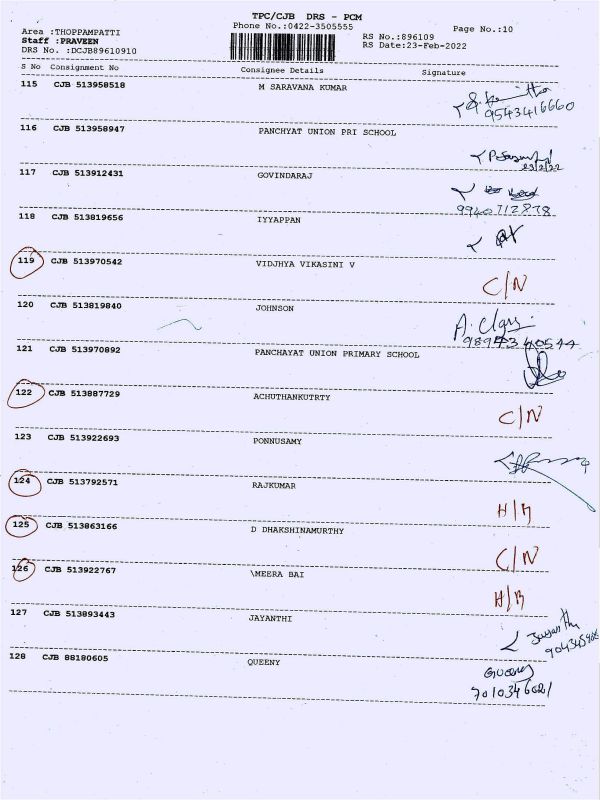 TPC/CJB DRS - PCM
Area :THOPPAMPATTI Phone No.:0422-3505555 Page No.:10
Staff :PRAVEEN RS No.:896109
DRS No. :DCJB89610910 RS Date:23-Feb-2022
S No Consignment No Consignee Details Signature
115 CJB 513958518 M SARAVANA KUMAR
9543416660
116 CJB 513958947 PANCHYAT UNION PRI SCHOOL
23/2/22
117 CJB 513912431 GOVINDARAJ
118 CJB 513819656 IYYAPPAN
119 CJB 513970542 VIDJHYA VIKASINI V
C/N
120 CJB 513819840 JOHNSON
121 CJB 513970892 PANCHAYAT UNION PRIMARY SCHOOL
122 CJB 513887729 ACHUTHANKUTRTY
C/N
123 CJB 513922693 PONNUSAMY
124 CJB 513792571 RAJKUMAR
125 CJB 513863166 D DHAKSHINAMURTHY
C/N
126 CJB 513922767 \MEERA BAI
127 CJB 513893443 JAYANTHI
128 CJB 88180605 QUEENY
Queeny